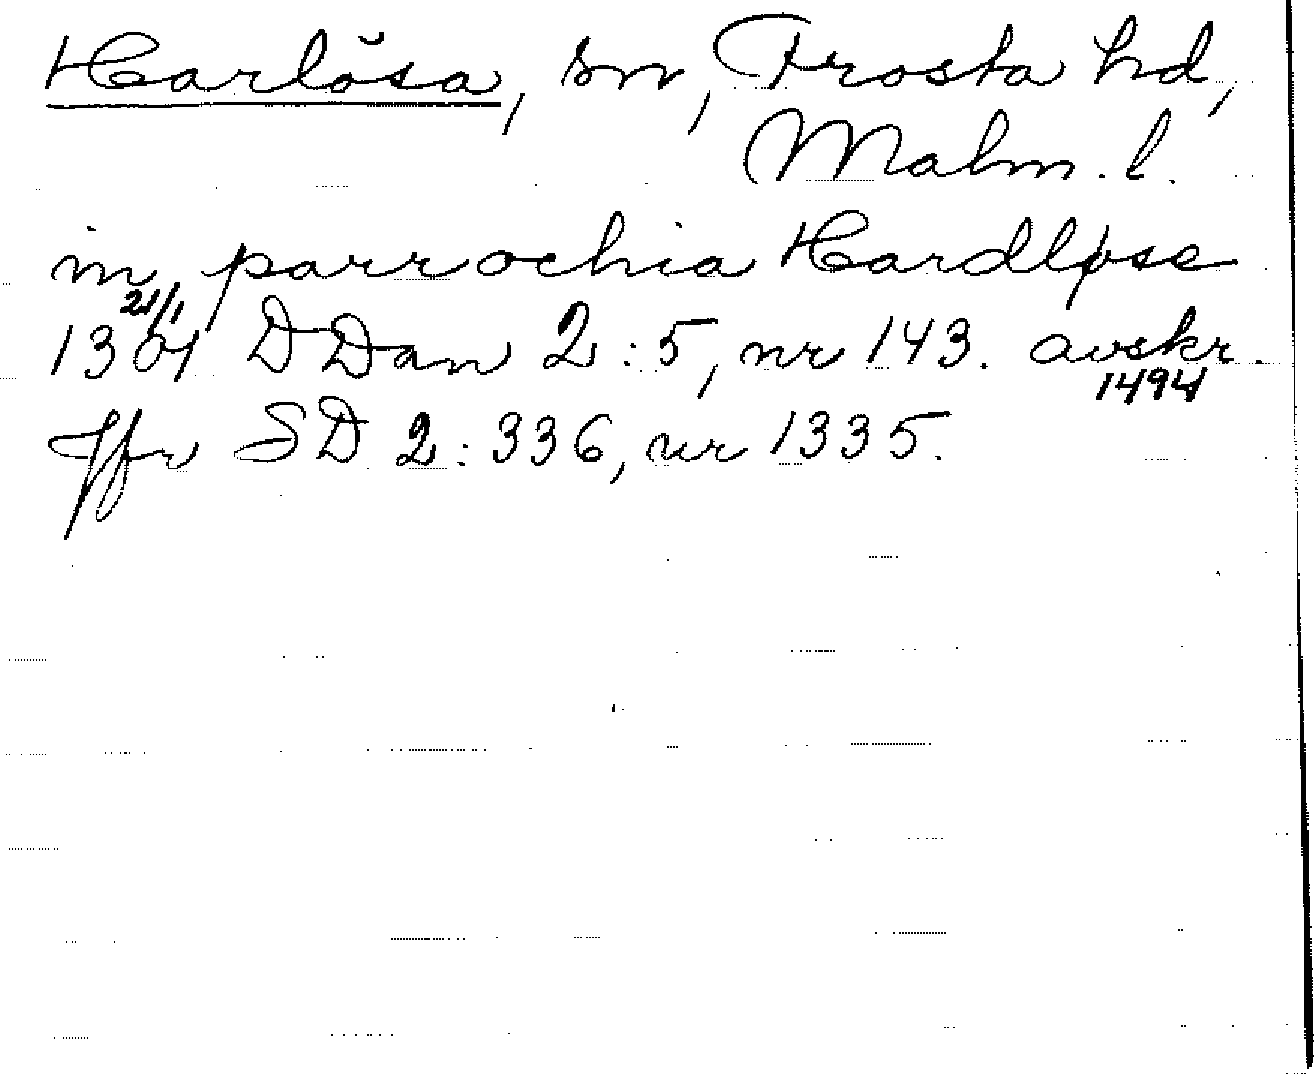 Harlösa, sn, Frosta hd,
Malm. l.
in parrochia Hardløse
21/1
1304 DDan 2:5, nr 143. avskr.
1494
Jfr SD 2:336, nr 1335.